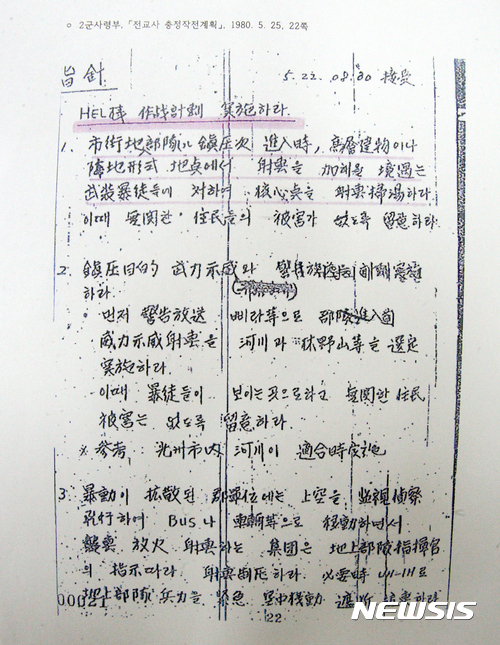 ○ 2군사령부, 「전교사 충정작전계획」, 1980. 5. 25, 22쪽
旨針 5. 22. 08:30 接受
HEL機 作战計劃 実施하라.
1. 市街地部隊 鎮圧次 進入時, 高層建物이나
陣地形式 地点에서 射撃을 加해온 境遇는
武装暴徒들에 対하여 核心点을 射撃掃湯하라
이때 無関한 住民들의 被害가 없도록 留意하라.
2. 鎮圧目的 武力示威와
하라.
· 먼저 警告放送 삐라等으로 部隊進入前
威力示威射撃을 河川과 林野山等을 選定
実施하라.
이때 暴徒들이 보이는 곳으로하고 無関한 住民
被害는 없도록 留意하라.
※ 参考 : 光州市内 河川이 適合
3. 暴動이 拡散된 郡単位에는 上空을 監視偵察
飛行하여 BUS나 車輌等으로 移動하면서
襲撃 放火 射撃하는 集団은 地上部隊指揮官
의 指示따라 射撃 하라. 必要時 UH-1H로
地上部隊 兵力을 緊急 空中機動
00021
22
NEWSIS